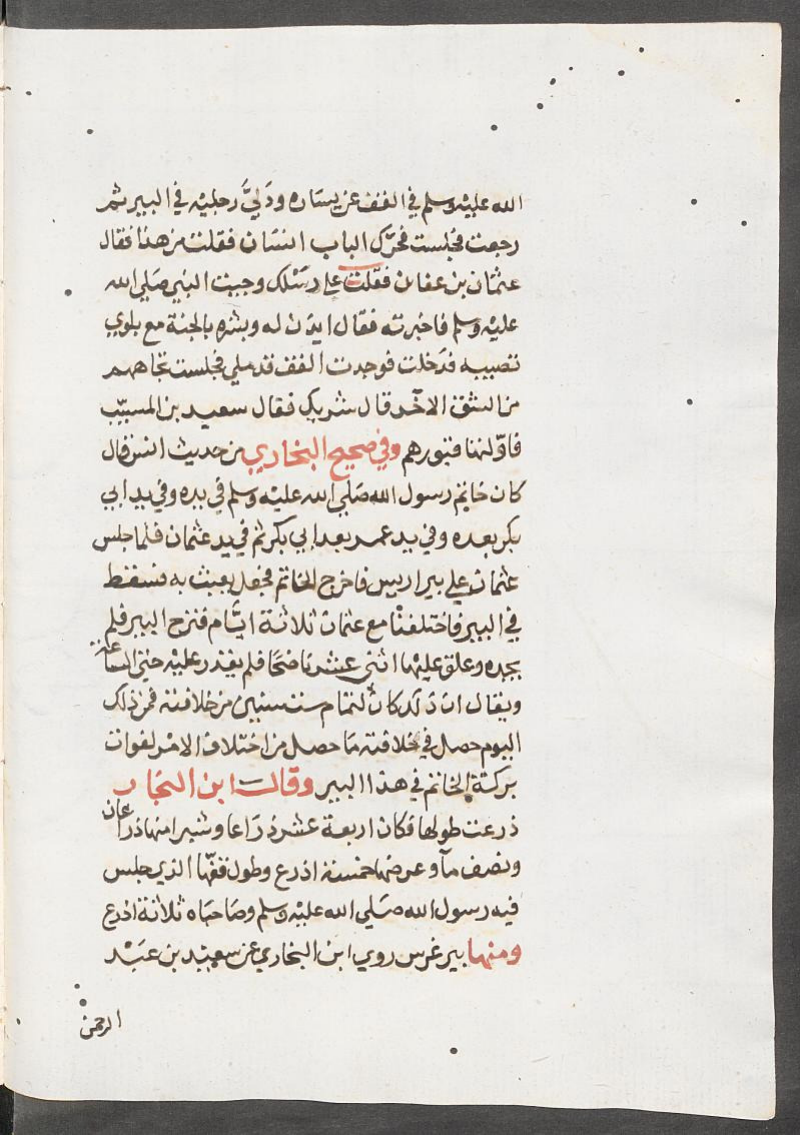 الله عليه وسلم في القف عن يساره ودَليَّ رجليه في البير ثمر
رجعت فجلست فحرّك الباب انسَان فقلت من هذا فقال
عثمان بن عفان فقلت علي رسْلك وجيت النبي صَلي الله
عليه وسلم فاخبرته فقال ايذن له وبشره بالجنة مع بلوي
تصيبه فدخلت فوجدت القف قد ملي فجلست تجاههم
من الشق الاخر قال شريك فقال سعيد بن المسيّب
فاوّلتها قبورهم وفي صحيح البخاري من حديث انس قال
كان خاتم رسول الله صَلي الله عليه وسلم في يده وفي يد ابي
بكر بعده وفي يد عمر بعد ابي بكر ثم في يد عثمان فلما جلس
عثمان علي بير اريس فاخرج الخاتم فجعل يعبث به فسقط
في البير فاختلفنا مع عثمان ثلاثة ايّام فنزح البير فلم
يجده وعلق عليها اثني عشر ناضحًا فلم يقدر عليه حتي الساعة
ويقال ان ذلك كان لتمام ست سنين من خلافته فمن ذلك
اليوم حصل في خلافته مَا حصل من اختلاف الامر لفوات
بركة الخاتم في هذا البير وقالت ابن النجار
ذرعت طولها فكان اربعة عشر ذرَاعا وشبرا منها ذراعان
ونصف مآ وعرضها خمسة اذرع وطول قفّها الذي جلس
فيه رسول الله صَلي الله عليه وسلم وصَاحبَاه ثلاثة اذرع
ومنها بير غرس روي ابن البخاري عن سعيْد بن عبْد
الرحمن